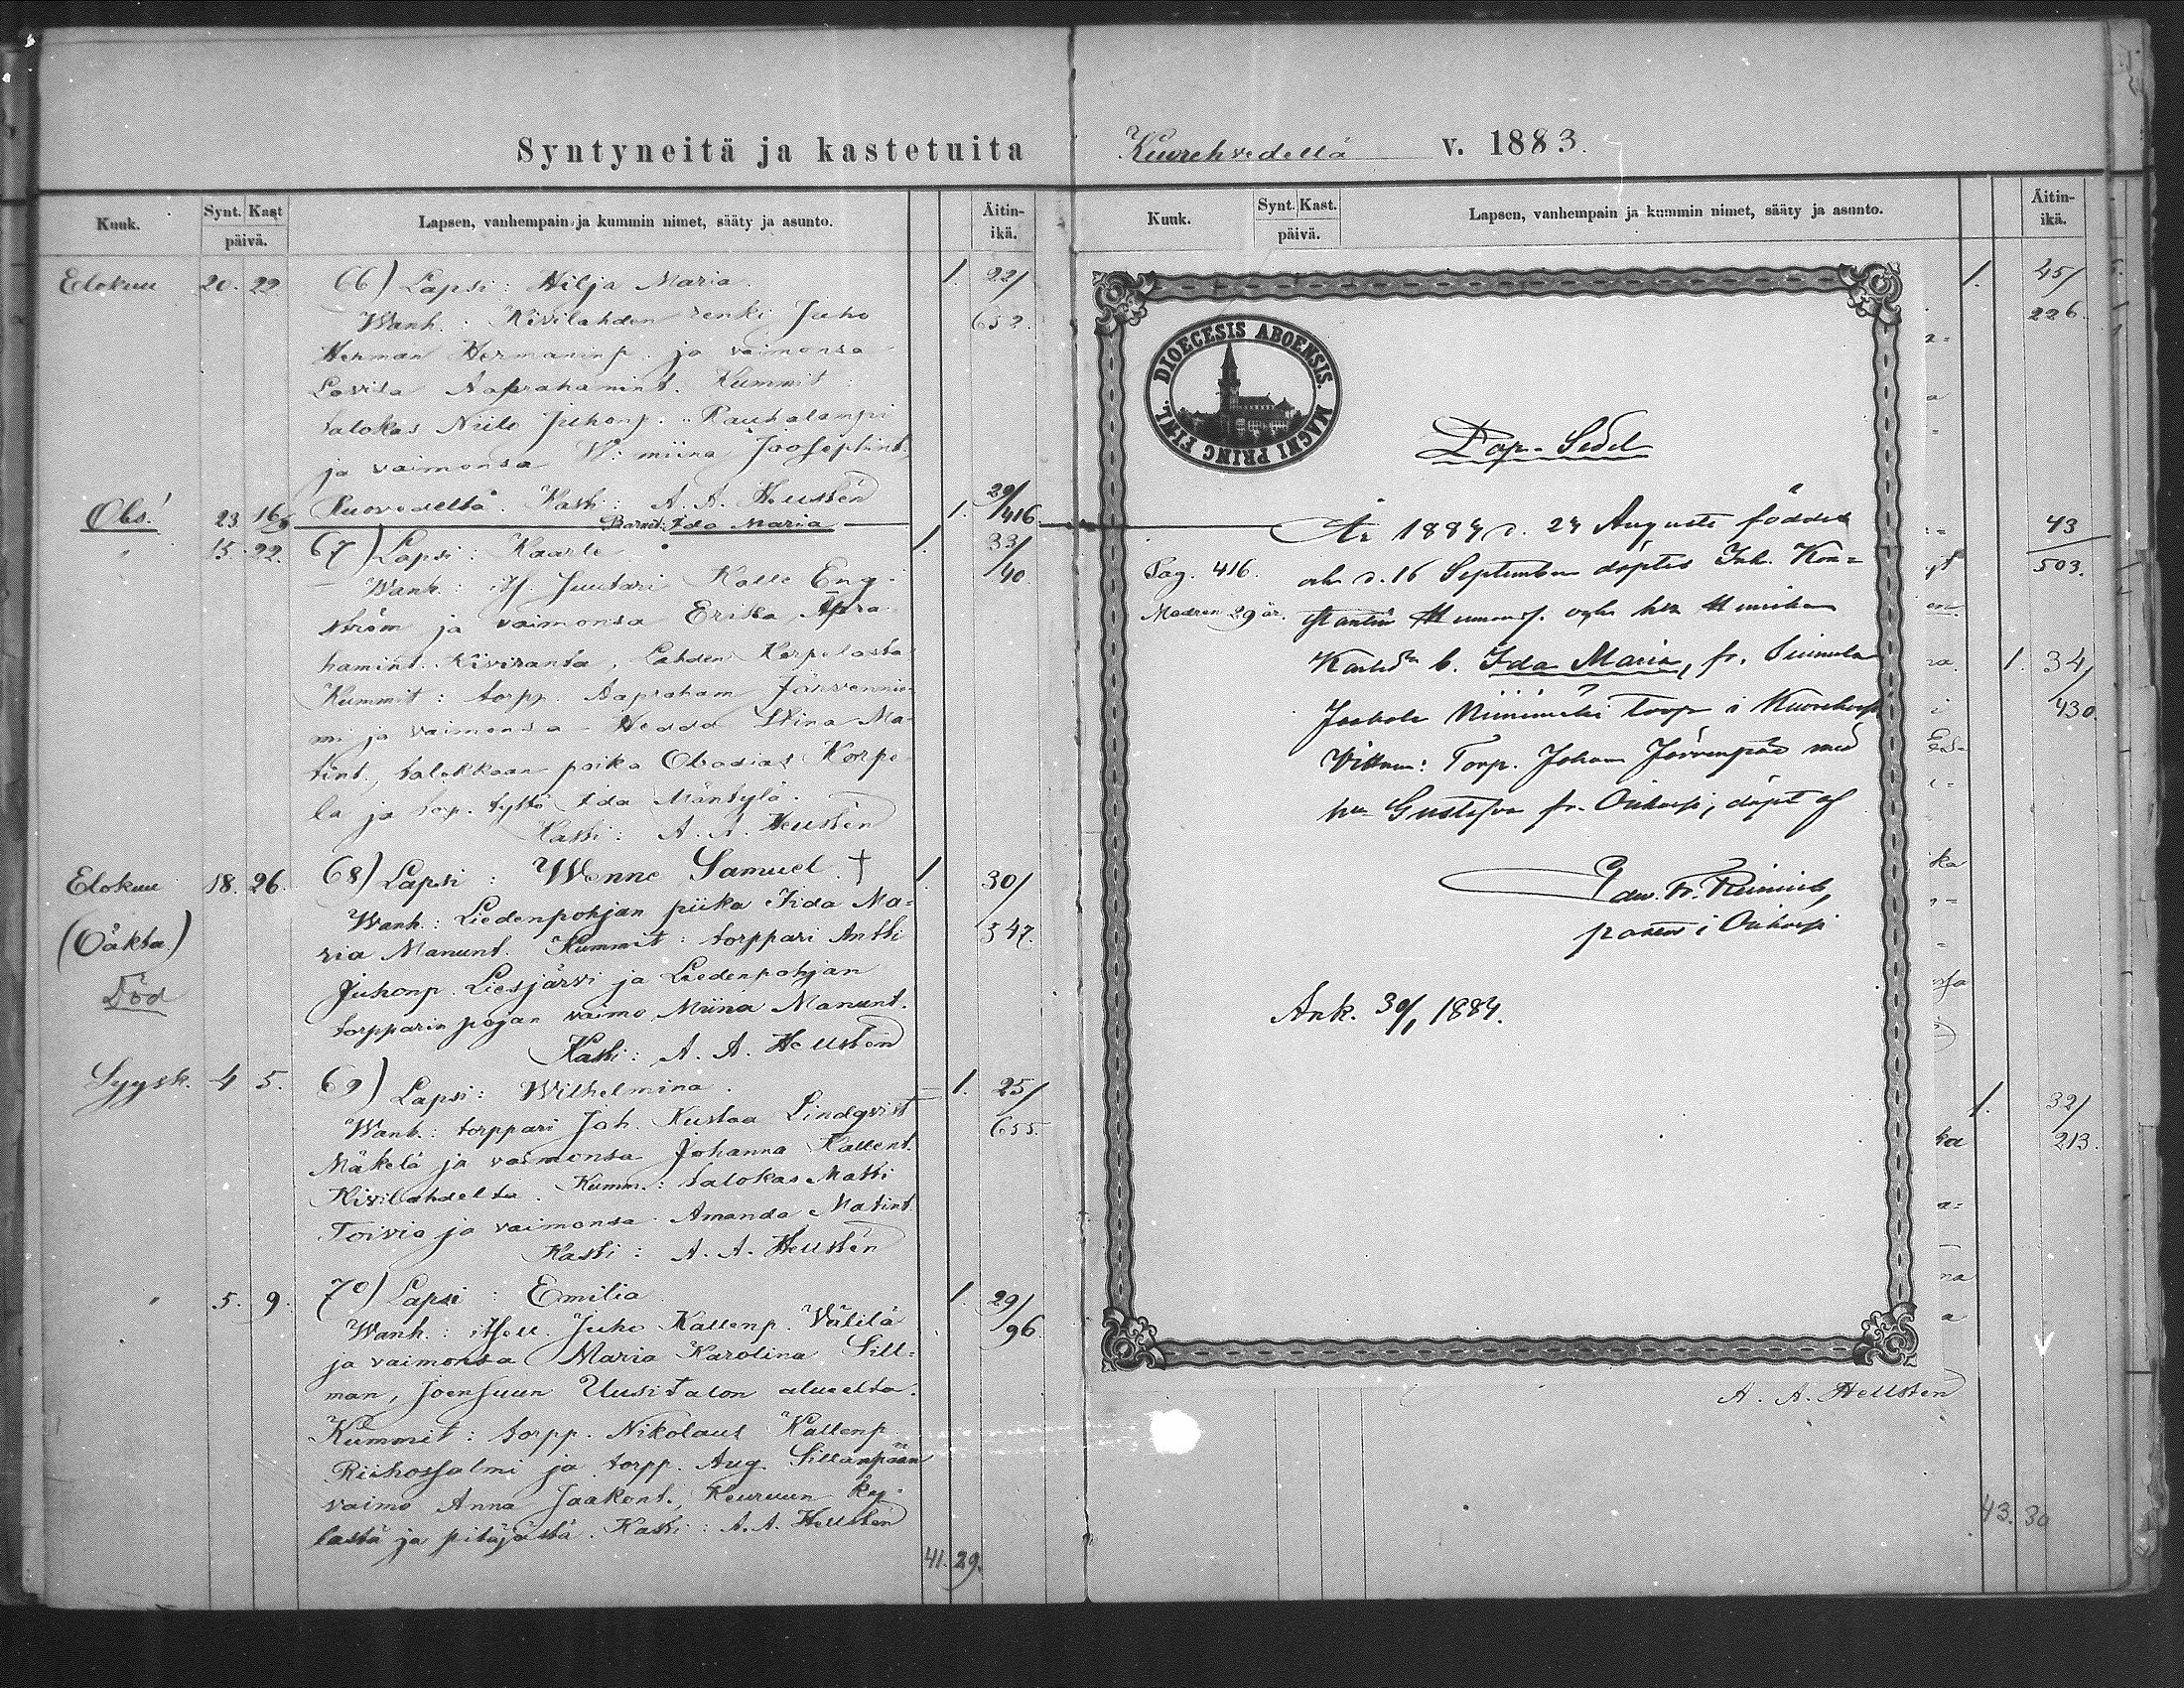 Syntyneitä ja kastetuita
Kuuk. Synt. Kast päivä. Lapsen, vanhempain ja kummin nimet, sääty ja asunto. Äitin-ikä.
Elokuu 20. 22 66) Lapsi: Hilja Maria. 1. 22/
Wanh.: Kivilahden renki Juho 652.
Herman Hermaninp. ja vaimonsa
Lovisa Aaprahamint. Kummit:
talokas Niilo Juhonp. Rautalampi
ja vaimonsa W:miina Joosephint.
Ruovedeltä. Kasti: A. A. Hellstén
Obs! 23 16/9 Barnet: Ida Maria 1. 29/416
" 15. 22. 67) Lapsi: Kaarle 1. 33/
Wanh.: its. Suutari Kalle Eng- 40.
ström ja vaimonsa Erika Apra
hamint. Kiviranta, Lahden Korpelasta
Kummit: torpp. Aapraham Järvennie-
mi ja vaimonsa Hedda Stina Ma-
tint., talokkaan poika Obadias Korpe-
la ja torp. tyttö Ida Mäntylä.
Kasti: A. A. Hellstén
Elokuu 18. 26. 68) Lapsi: Wenne Samuel † 1. 30/
Wanh.: Liedenpohjan piika Iida Ma- 547.
(Oäkta)
ria Manunt. Kummit: torppari Antti
Juhonp. Liesjärvi ja Liedenpohjan
Död
torpparin pojan vaimo Miina Manunt.
Kasti: A. A. Hellstén
Syysk. 4 5. 69) Lapsi: Wilhelmina. 1. 25/
Wanh.: torppari Joh. Kustaa Lindqvist 655.
Mäkelä ja vaimonsa Johanna Kallent.
Kivilahdelta. Kumm.: talokas Matti
Toivio ja vaimonsa Amanda Matint.
Kasti: A. A. Hellstén
" 5. 9. 70) Lapsi: Emilia 1. 29/
Wanh.: itsell. Juho Kallenp. Välilä 96.
ja vaimonsa Maria Karolina Sill-
man, Joensuun Uusitalon alueelta.
Kummit: torpp. Nikolaus Kallenp.
Riihossalmi ja torpp. Aug. Sillanpään
vaimo Anna Jaakont., Keuruun ky-
lästä ja pitäjästä. Kasti: A. A. Hellstén
41. 29.
Kuorehvedellä v. 1883.
Kuuk. Synt. Kast. päivä. Lapsen, vanhempain ja kummin nimet, sääty ja asunto. Äitin-ikä.
1. 45/
226.
DIOECESIS ABOENSIS. MAGNI PRINC FINL.
Dop-Sedel
År 1883 d. 23 Augusti föddes 43
Pag. 416. och d. 16 September döptes Inh. Kon= 503.
Modren 29 år.
Ida Maria, fr.
1. 34/
Torp i 430.
Vittnen: Torp. Johan Järvenpää med
hu Gustafva fr. döpt af
pastor i
Ank. 30/1 1884.
1. 32/
213.
A. A. Hellstén
43. 30